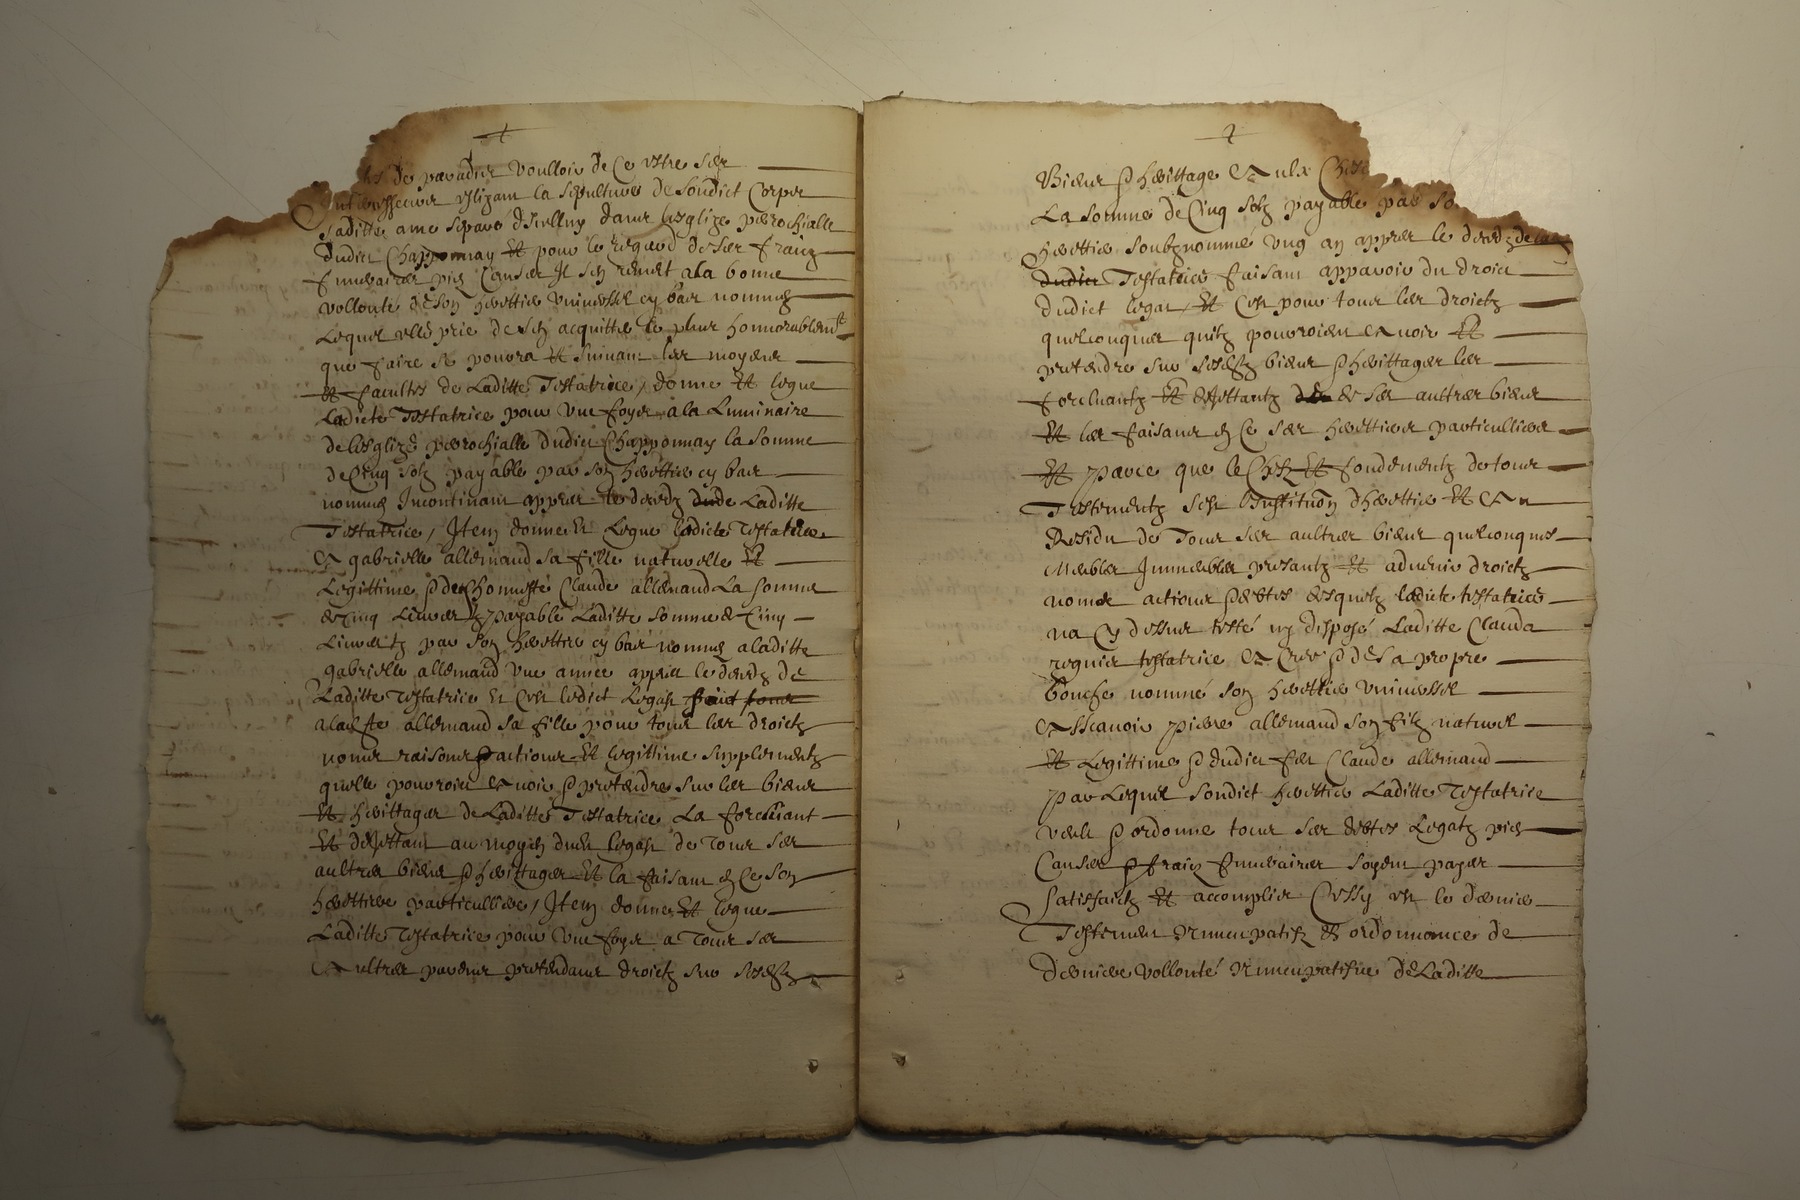 de paradis voulloir de ce estre ser
eslizant la sepulture de sondict corps
saditte ame separe d'icelluy dans l'esglize parochialle
dudict Chapponnay Et pour le regard de ses fraiz
funeraires pies causes Il s'en remet a la bonne
vollonte de son herettier universsel cy bas nommez
Lequel elle prie de s'en acquitter le plus honnorablemt
que faire se pourra Et suivant les moyens
Et facultes de Laditte Testatrice / donne Et legue
Ladicte Testatrice pour une foys a la Luminaire
de l'esglize parrochialle dudict Chapponnay la somme
de Cinq solz payable par son herettier cy bas
nommes Incontinant appres le decedz de Laditte
Testatrice / Item donne Et Legue ladicte Testatrice
a gabrielle allemand sa fille naturelle Et
Legittime & de honneste Claude allemand La somme
de cinq Livres payable Laditte somme de Cinq
Livres par son herettier cy bas nommes a laditte
gabrielle allemand une annee appres le decedz de
Laditte Testatrice Et c'est ledict Legat faict pour
a ladite allemand sa fille pour tous les droictz
noms raisons & actions Et legittime supplementz
quelle pourroict avoir & pretendre sur les biens
Et herittages de Laditte Testatrice La forcluant
Et dejettant au moyen dudit legat de Tous ses
aultres biens & herittages Et la faisant en ce son
herettiere particulliere / Item donne Et legue
Laditte Testatrice pour une foys a Tous ses
aultres parens pretendans droictz sur sesditz
Biens & herittage a ulx
La somme de Cinq solz payable par so
herettier soubznommé ung an appres le decedz de lad
dudict Testatrice faisant apparoir du droict
dudict legat / Et c'est pour tous les droictz
quelconques quilz pourroient avoir Et
pretendre sur sesditz biens & herittages les
forcluantz Et dejettantz de ses aultres biens
Et les faisant en ce ses herettiers particulliers
Et parce que le Chefz Et fondementz de tous
Testementz sest Institution d'herettier Et au
Residu de Tous ses aultres biens quelconques
Meubles Immeubles presantz Et advenir droictz
noms actions & debtes desquelz ladicte testatrice
na cy dessus testé ny disposé Laditte Clauda
regnier testatrice a creé & de sa propre
bouche nommé son herettier universsel
assavoir pierre allemand son filz naturel
Et Legittime & dudict feu Claude allemand
par Lequel sondict herettier Laditte Testatrice
veult & ordonne tous ses debtes Legatz pies
Causes & fraiz funeraires soyent payes
satisfaictz Et accomplies Cessy est le dernier
Testement Nuncupatifz Et ordonnance de
derniere vollonté Nuncupatifve de Laditte